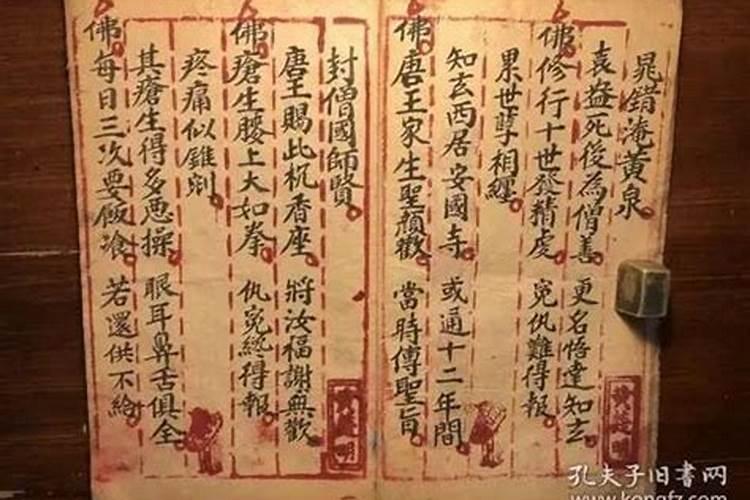 晁錯淹黃泉
袁益死後為僧善 更名悟達知玄
佛修行十世發精虔 寃仇難得報
累世孽相纏
知玄西居安國寺 或通十二年間
佛唐王家生聖顏歡 當時傳聖旨
封僧國師賢
唐王賜此香座 將汝福謝無歡
佛瘡生腰上大如拳 仇寃終得報
疼痛似錐剜
其瘡生得多恶操 眼耳鼻舌俱全
佛每日三次要飯飡 若還供不給
孔夫子旧书网